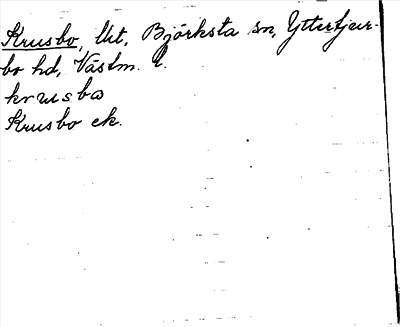 Krusbo, Urt, Björksta sn, Yttertjur-
bo hd, Västm. l.
krusbo
Krusbo ek.